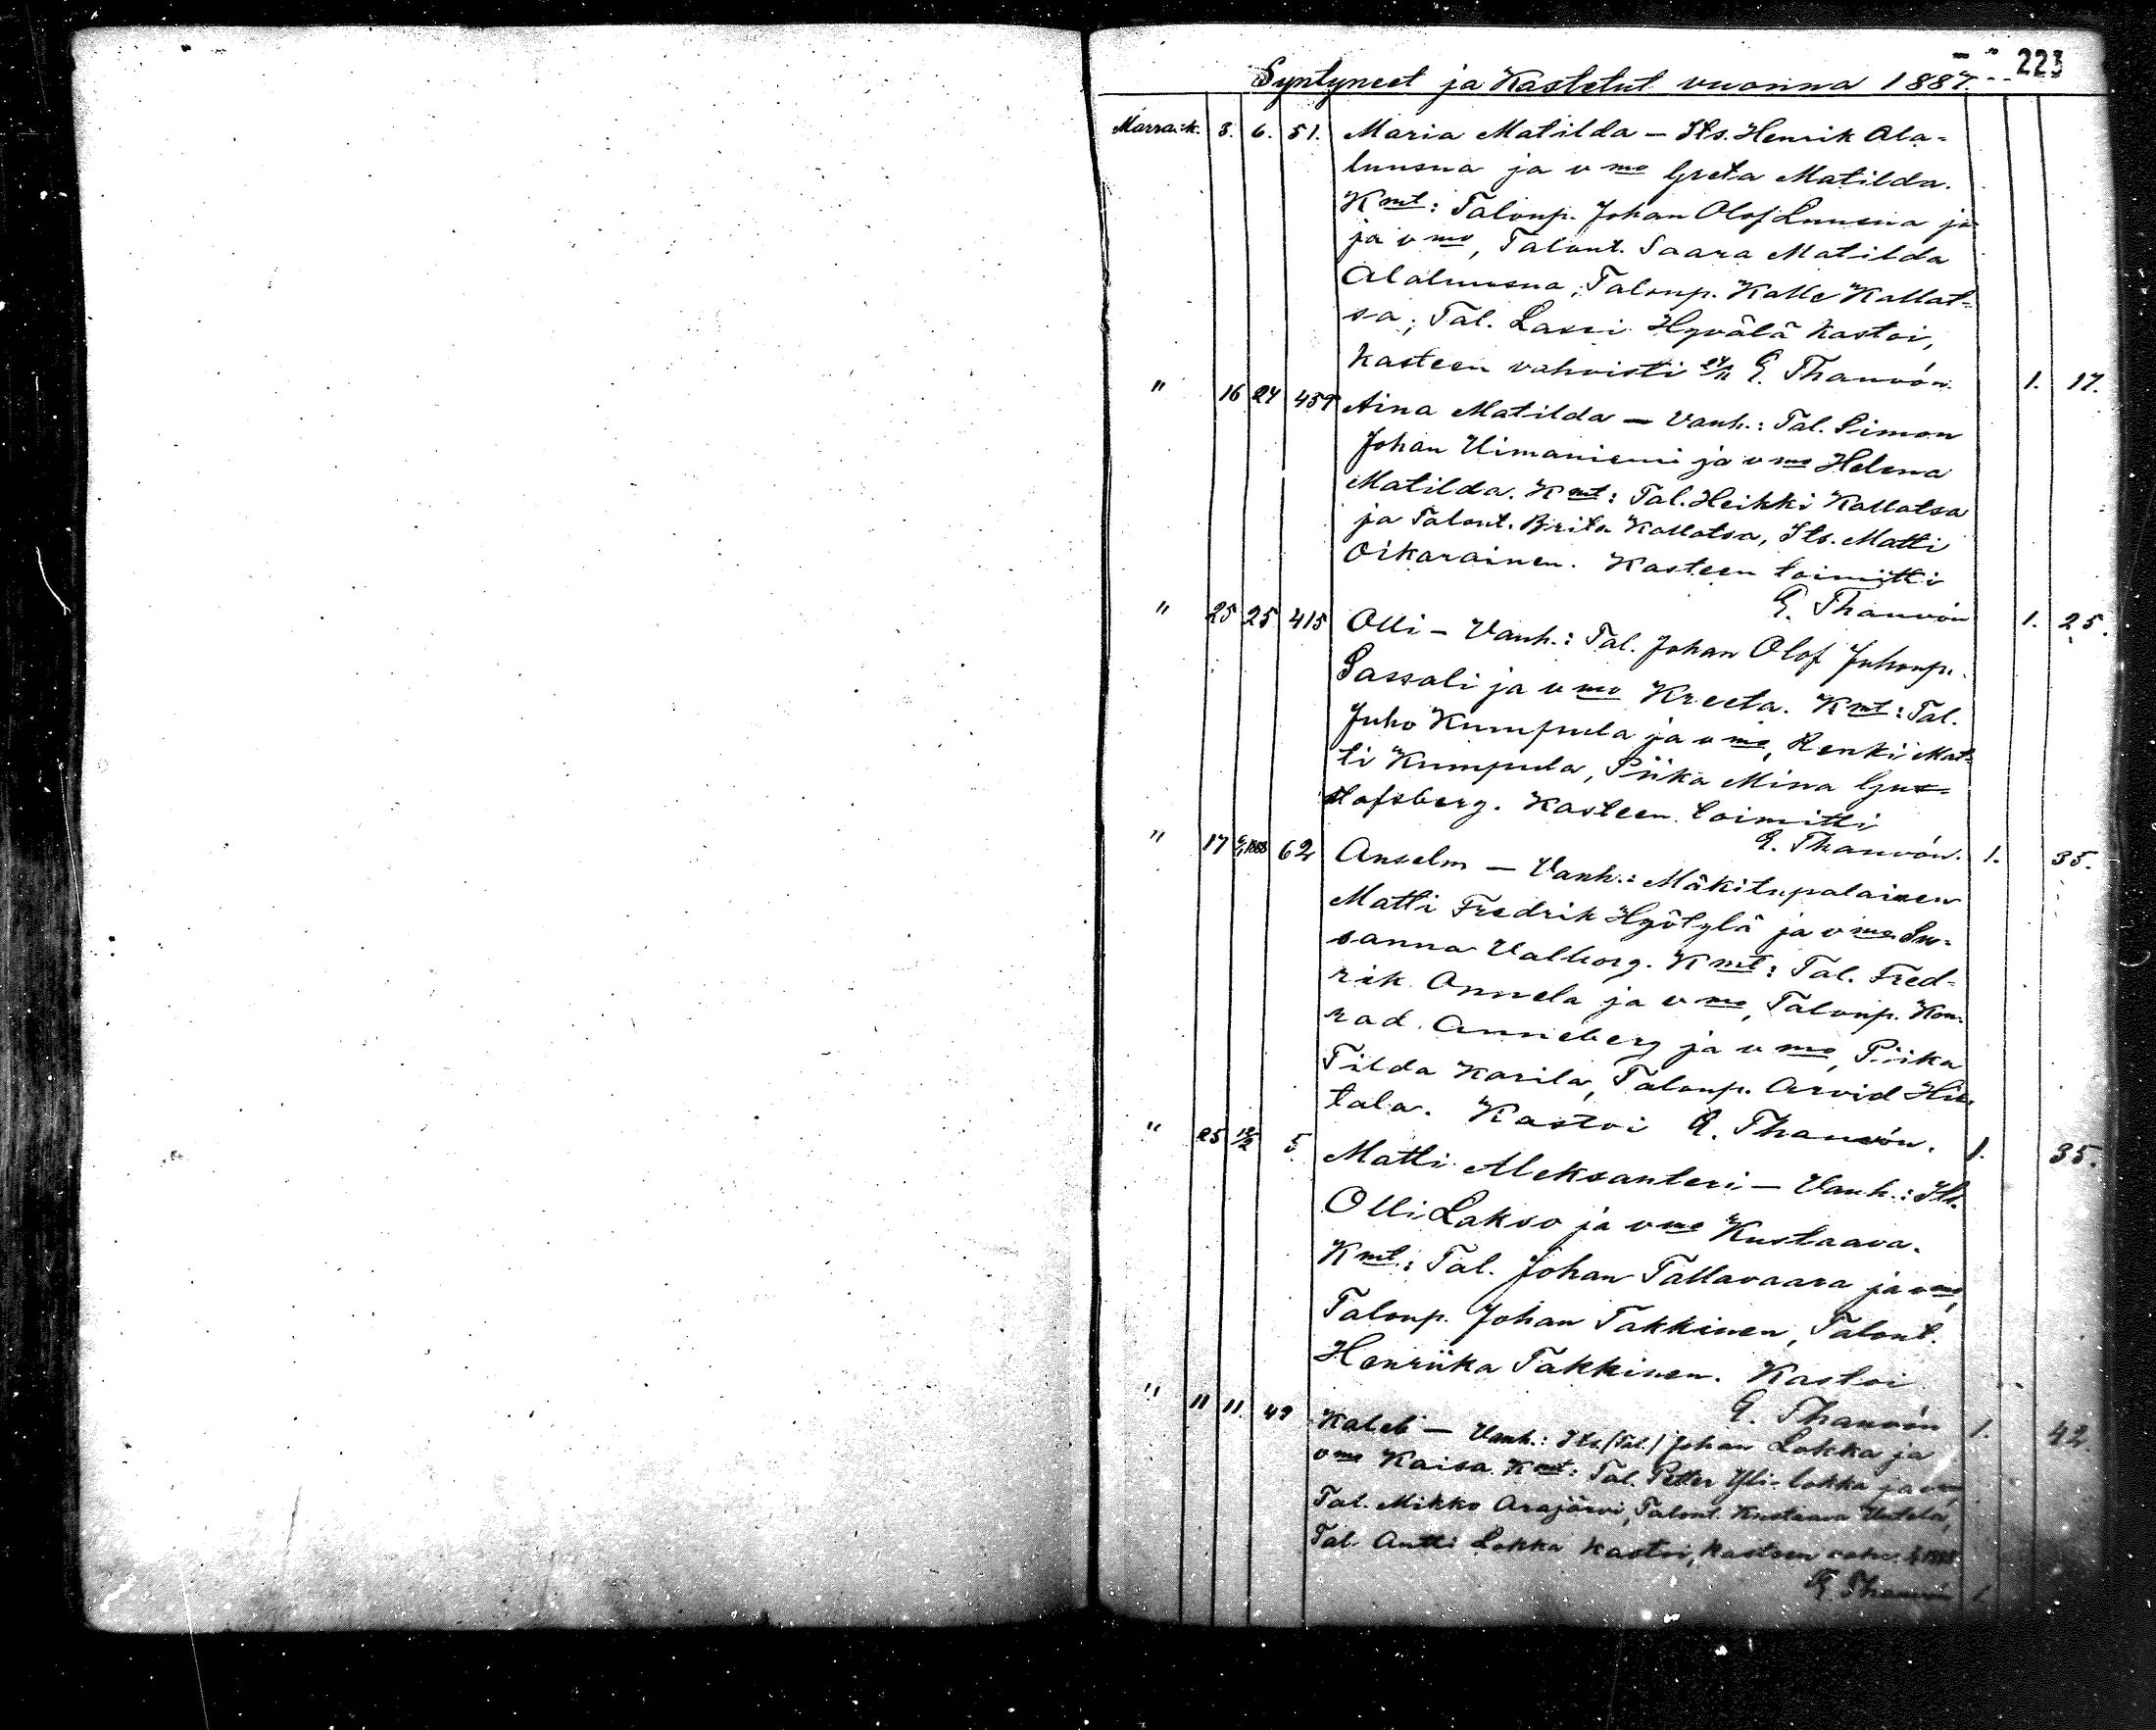 223
Syntyneet ja Kastetut vuonna 1887.
Marra.k. 3. 6. 51. Maria Matilda – Its. Henrik Ala=
luusua ja vmo Greta Matilda.
Kmt: Talonp. Johan Olof Luusua ja
ja vmo, Talont. Saara Matilda
Alaluusua, Talonp. Kalle Kallat=
sa; Tal. Lassi Hyvälä kastoi,
kasteen vahvisti G. Thauvón. 1. 17.
" 16 24 459 Aina Matilda – Vanh.: Tal. Simon
Johan Uimaniemi ja vmo Helena
Matilda. Kmt: Tal. Heikki Kallatsa
ja Talont. Brita Kallatsa, Its. Matti
Oikarainen. Kasteen toimitti
G. Thauvón 1. 25.
" 25 25 415 Olli – Vanh.: Tal. Johan Olof Juhonp.
Sassali ja vmo Kreeta. Kmt: Tal.
Juho Kumpula ja vmo, Renki Mat=
ti Kumpula, Piika Mina Gus=
tafsberg. Kasteen toimitti
G. Thauvón. 1. 35.
" 17 6/1 1888 62 Anselm – Vanh.: Mäkitupalainen
Matti Fredrik Hyötylä ja vmo Su=
sanna Valborg. Kmt: Tal. Fred=
rik Annela ja vmo, Talonp. Kon=
rad Anneberg ja vmo, Piika
Tilda Karila, Talonp. Arvid Hie=
tala. Kastoi G. Thauvón. 1. 35.
" 25 12/2 5. Matti Aleksanteri – Vanh.: Its.
Olli Lakso ja vmo Kustaava.
Kmt: Tal. Johan Tallavaara ja vmo,
Talonp. Johan Takkinen, Talont.
Henriika Takkinen. Kastoi
G. Thauvón 1. 42.
" 11 11. 49 Kaleb – Vanh.: Its. (Tal.) Johan Lokka ja
vmo Kaisa. Kmt: Tal. Petter Yli-lokka ja vmo,
Tal. Mikko Arajärvi, Talont. Kustaava
Tal. Antti Lokka kastoi, kasteen vahv. 1888.
G. Thauvón 1.